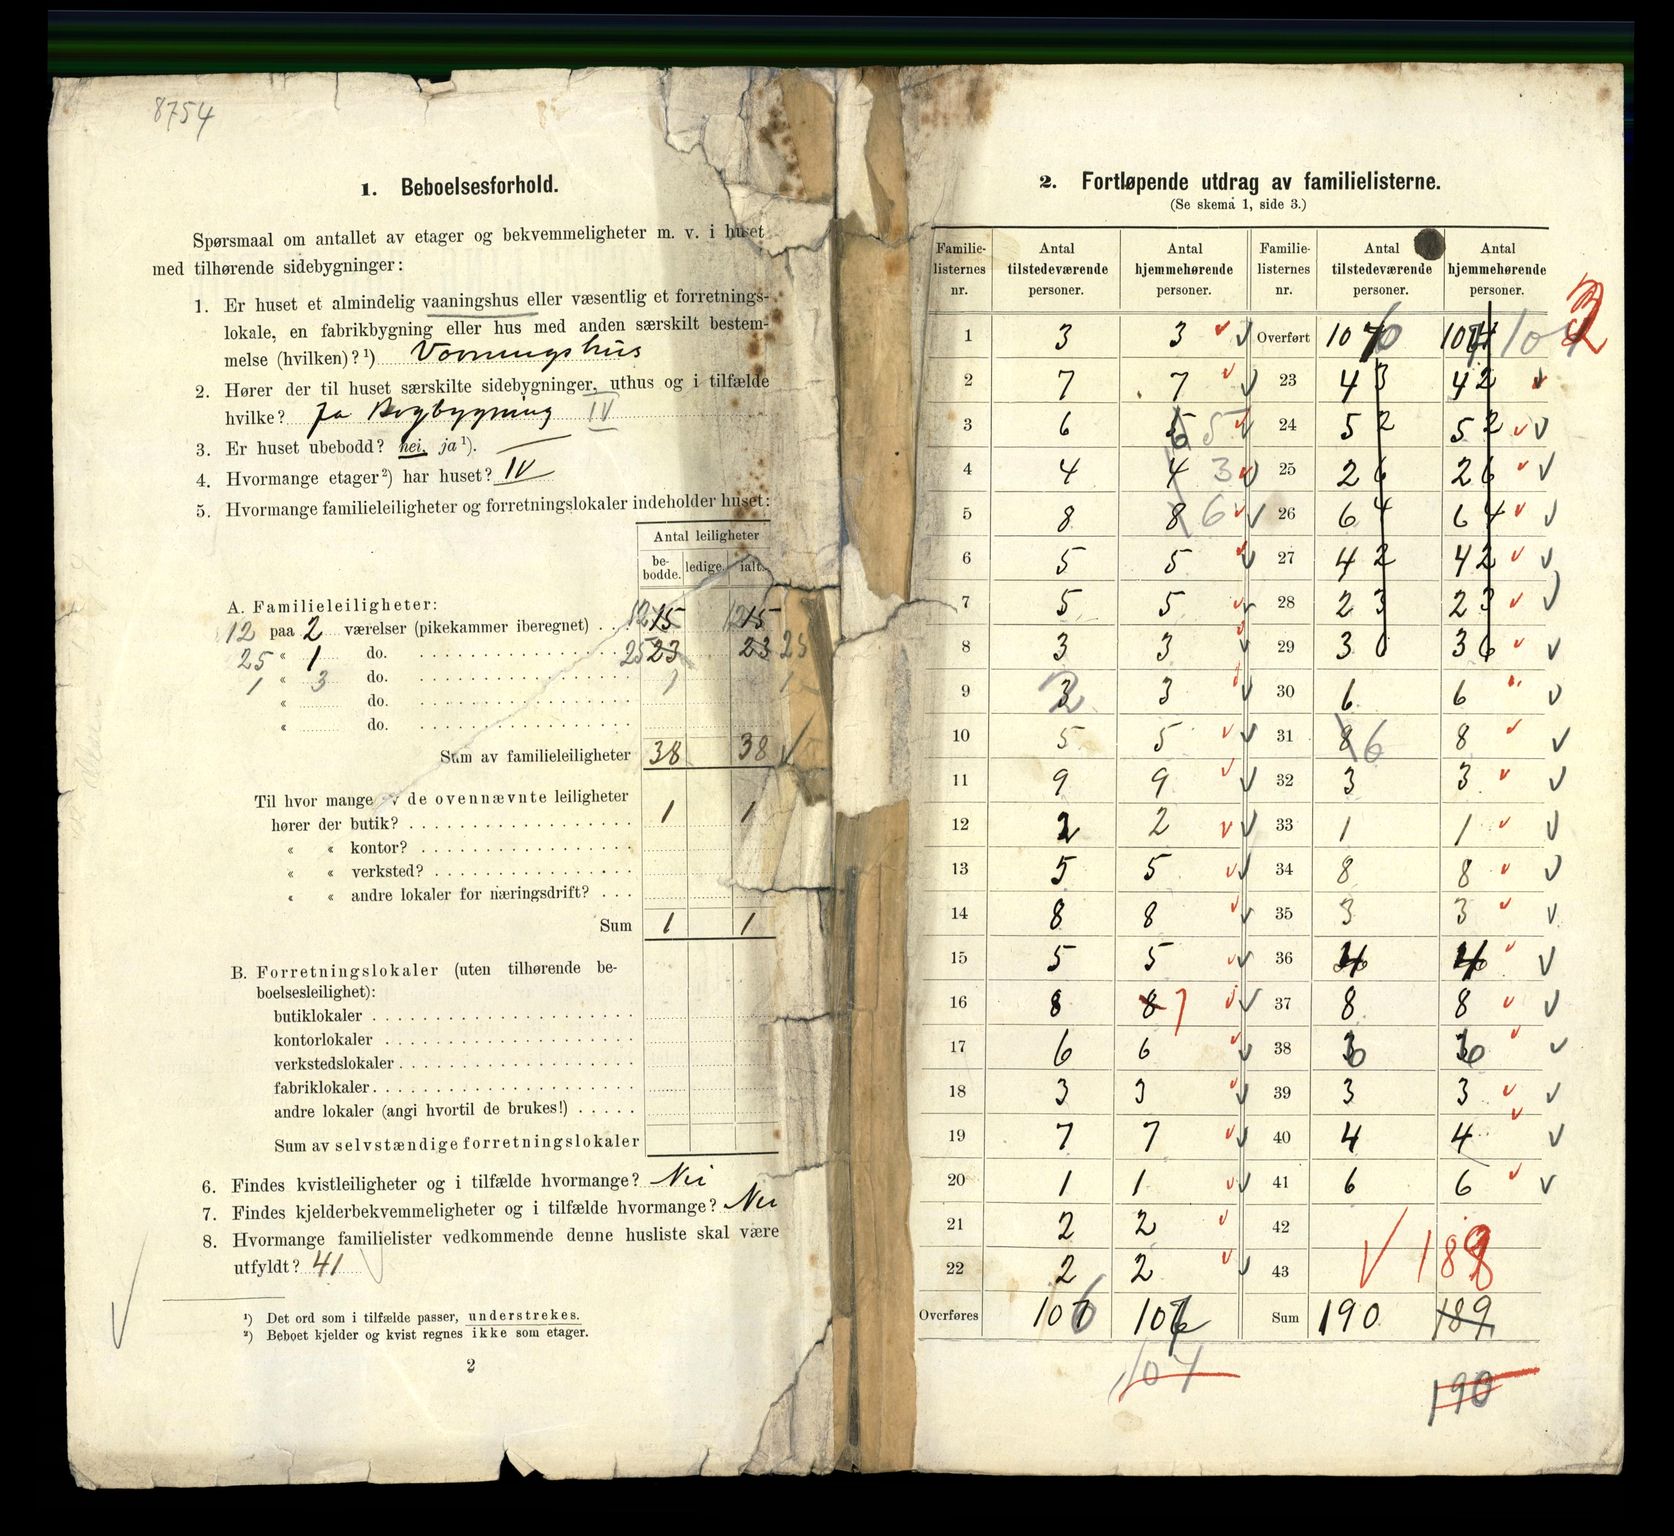 8754
1. Beboelsesforhold.
Spørsmaal om antallet av etager og bekvemmeligheter m. v. i huset
med tilhørende sidebygninger:
1. Er huset et almindelig vaaningshus eller væsentlig et forretnings-
lokale, en fabrikbygning eller hus med anden særskilt bestem-
melse (hvilken)? ¹) Vaaningshus
2. Hører der til huset særskilte sidebygninger, uthus og i tilfælde
hvilke? Ja Bogbygning IV
3. Er huset ubebodd? nei, ja ¹).
4. Hvormange etager ²) har huset? IV
5. Hvormange familieleiligheter og forretningslokaler indeholder huset:
Antal leiligheter
be-bodde. ledige. ialt.
A. Familieleiligheter:
12 paa 2 værelser (pikekammer iberegnet) . . . 12 15 12 15
25 « 1 do. 25 23 23 25
1 « 3 do. 1 1
« do.
« do.
Sum av familieleiligheter 38 38
Til hvor mange av de ovennævnte leiligheter
hører der butik? 1 1
« « kontor?
« « verksted?
« « andre lokaler for næringsdrift?
Sum 1 1
B. Forretningslokaler (uten tilhørende be-
boelsesleilighet):
butiklokaler
kontorlokaler
verkstedslokaler
fabriklokaler
andre lokaler (angi hvortil de brukes!)
Sum av selvstændige forretningslokaler
6. Findes kvistleiligheter og i tilfælde hvormange? Nei
7. Findes kjelderbekvemmeligheter og i tilfælde hvormange? Nei
8. Hvormange familielister vedkommende denne husliste skal være
utfyldt? 41
¹) Det ord som i tilfælde passer, understrekes.
²) Beboet kjelder og kvist regnes ikke som etager.
2
2. Fortløpende utdrag av familielisterne.
(Se skema 1, side 3.)
Familie-listernes nr. Antal tilstedeværende personer. Antal hjemmehørende personer. Familie-listernes nr. Antal tilstedeværende personer. Antal hjemmehørende personer.
1 3 3 Overført 106 104 104
2 7 7 23 4 3 4 2
3 6 5 5 24 5 2 5 2
4 4 4 3 25 2 6 2 6
5 8 8 6 26 6 4 6 4
6 5 5 27 4 2 4 2
7 5 5 28 2 3 2 3
8 3 3 29 3 0 3 6
9 2 3 30 6 6
10 5 5 31 8 6 8
11 9 9 32 3 3
12 2 2 33 1 1
13 5 5 34 8 8
14 8 8 35 3 3
15 5 5 36 4 4
16 8 8 7 37 8 8
17 6 6 38 6 6
18 3 3 39 3 3
19 7 7 40 4 4
20 1 1 41 6 6
21 2 2 42
22 2 2 43 188
Overføres 106 107 Sum 190 189
104 190